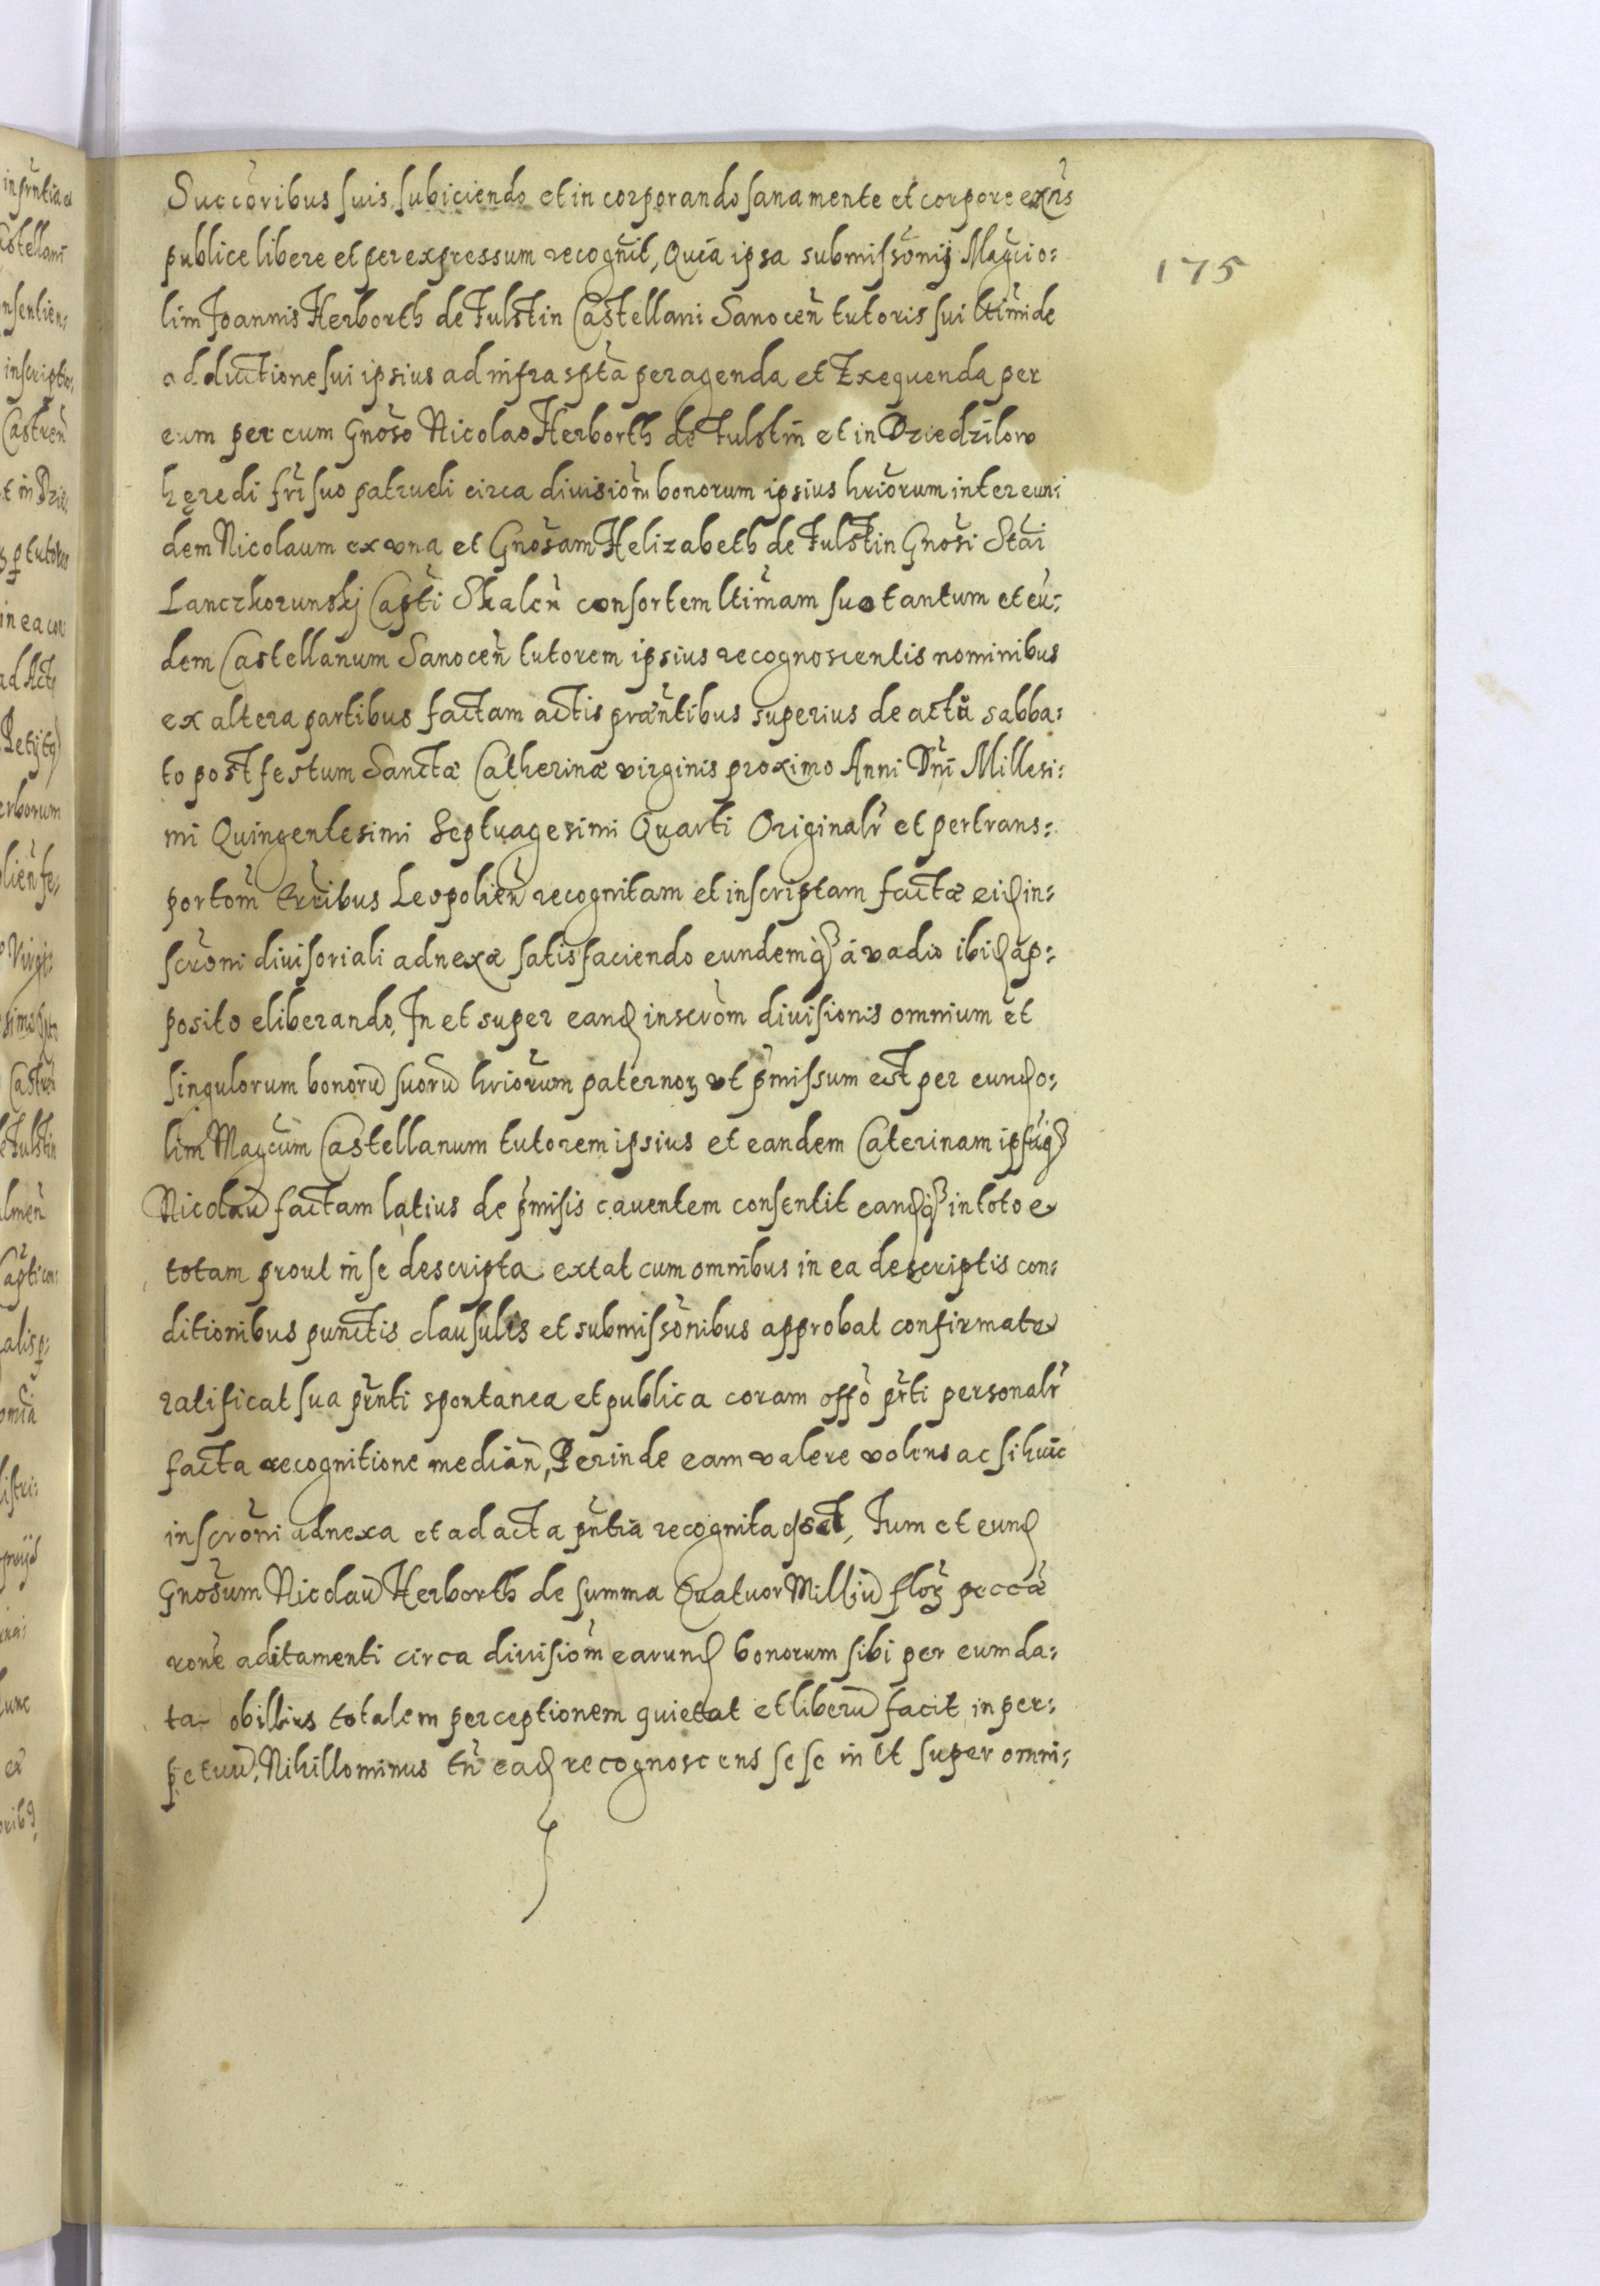 Succoribus suis subiciendo et in corporando sana mente et corpore exñs
publice libere et per expressum recognit, Quia ipsa submissonij Magci o:
lim Joannis Herborth de Fulstin Castellani Sanoceñ tutoris sui ltimi de
adductione sui ipsius ad infra spta peragenda et Exequenda per
eum per cum Gnoso Nicolao Herborth de Fulstin et in Dziedzilow
heredi fri suo patrueli circa divisiom bonorum ipsius hriorum inter eun:
dem Nicolaum ex vna et Gnosam Helizabeth de Fulstin Gnosi Stai
Lanczkorunskj Casti Skaleñ consortem ltimam suo tantum et eu:
dem Castellanum Sanoceñ tutorem ipsius recognoscentis nominibus
ex altera partibus factam actis præntibus superius de actu sabba:
to post festum Sanctæ Catherinæ virginis proximo Anni Dni Millesi:
mi Quingentesimi Septuagesimi Quarti Originalr et pertrans:
portom trribus Leopolieñ recognitam et inscriptam factæ eid in:
scroni divisoriali adnexæ satisfaciendo eundemq́ á vadio ibid ap:
posito eliberando, In et super eand inscrom divisionis omnium et
singulorum bonorũ suorũ hriorum paternoꝝ vt pmissum est per eund o:
lim Magcum Castellanum tutorem ipsius et eandem Caterinam ipsuq́
Nicolaũ factam latius de pmisis caventem consentit eandq́ in toto et
totam prout in se descripta extat cum omnibus in ea descriptis con:
ditionibus punctis clausulis et submissonibus approbat confirmat et
ratificat sua pnti spontanea et publica coram offo pnti personalr
facta recognitione mediañ, Perinde eam valere volens ac si huic
inscroni adnexa et ad acta pntia recognita esset, Tum et eund
Gnosum Nicolaũ Herborth de summa Quatuor Milliũ floꝝ peccæ
rone aditamenti circa divisiom earund bonorum sibi per eum da:
ta ob illius totalem perceptionem quietat et liberũ facit in per:
petuũ, Nihillominus tñ ead recognoscens se se in et super omni:
175